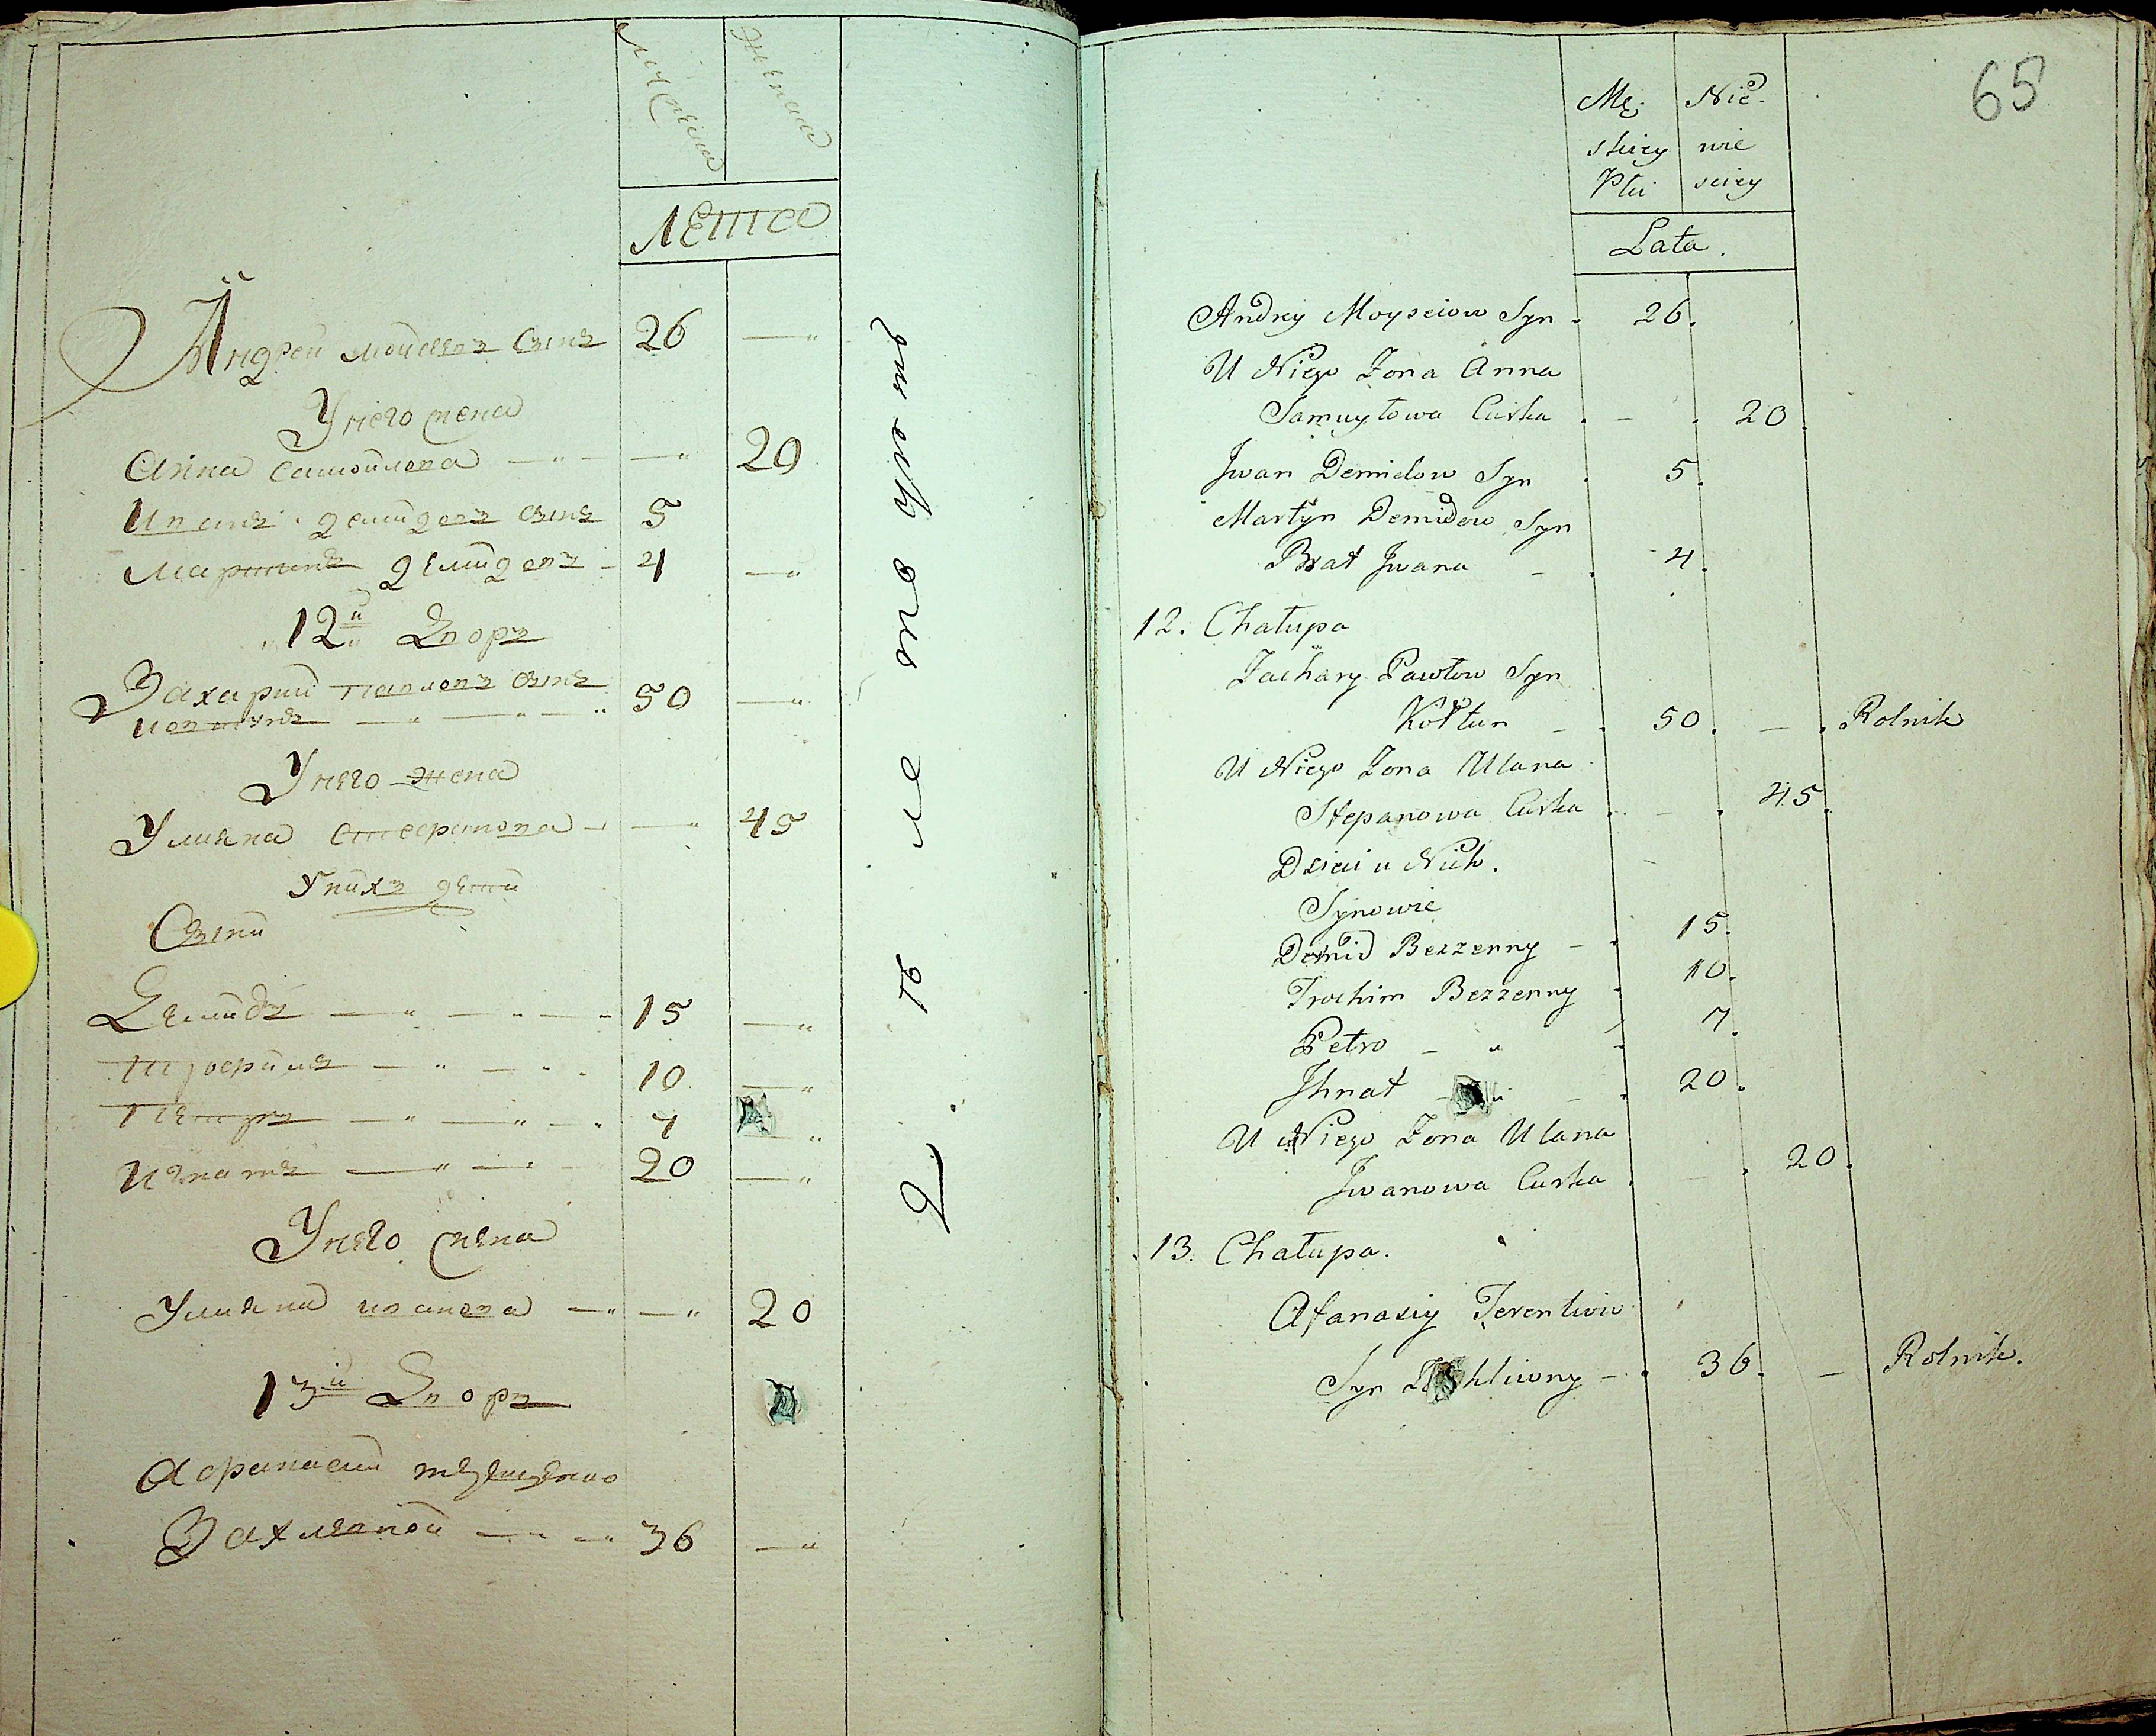 Лета
Андрей мойсеевъ сынъ 26
У него жена
Анна самойлова 20
Иванъ демидовъ сынъ 5
мартинъ демидовъ 4
12й Дворъ
Захарий павловъ сынъ
ковтунъ 50
У него жена
Улияна стефанова 45
У нихъ дети
Сыни
Демидъ 15
трофимъ 10
петръ 7
игнатъ 20
У него жена
Улияна иванова 20
13й Дворъ
Афанасий
Захливной 36
65
Mę Nie
skiey wie
Płci sciey
Lata.
Andrey Moyseiow Syn 26.
U Niego Zona Anna
Samuyłowa Curka 20
Jwan Demidow Syn 5.
Martyn Demidow Syn
Brat Jwana 4.
12. Chałupa
Zachary Pawłow Syn
Kołtun 50. Rolnik
U Niego Zona Ulana
Stepanowa Curka 45.
Dzieci u Nich.
Synowie
Demid Bezzenny 15.
Trochim Bezzenny 10.
Petro 7.
Jhnat 20.
U Niego Zona Ulana
Jwanowa Curka 20.
13. Chałupa.
Afanasiy Terentiow
Syn 36. Rolnik.